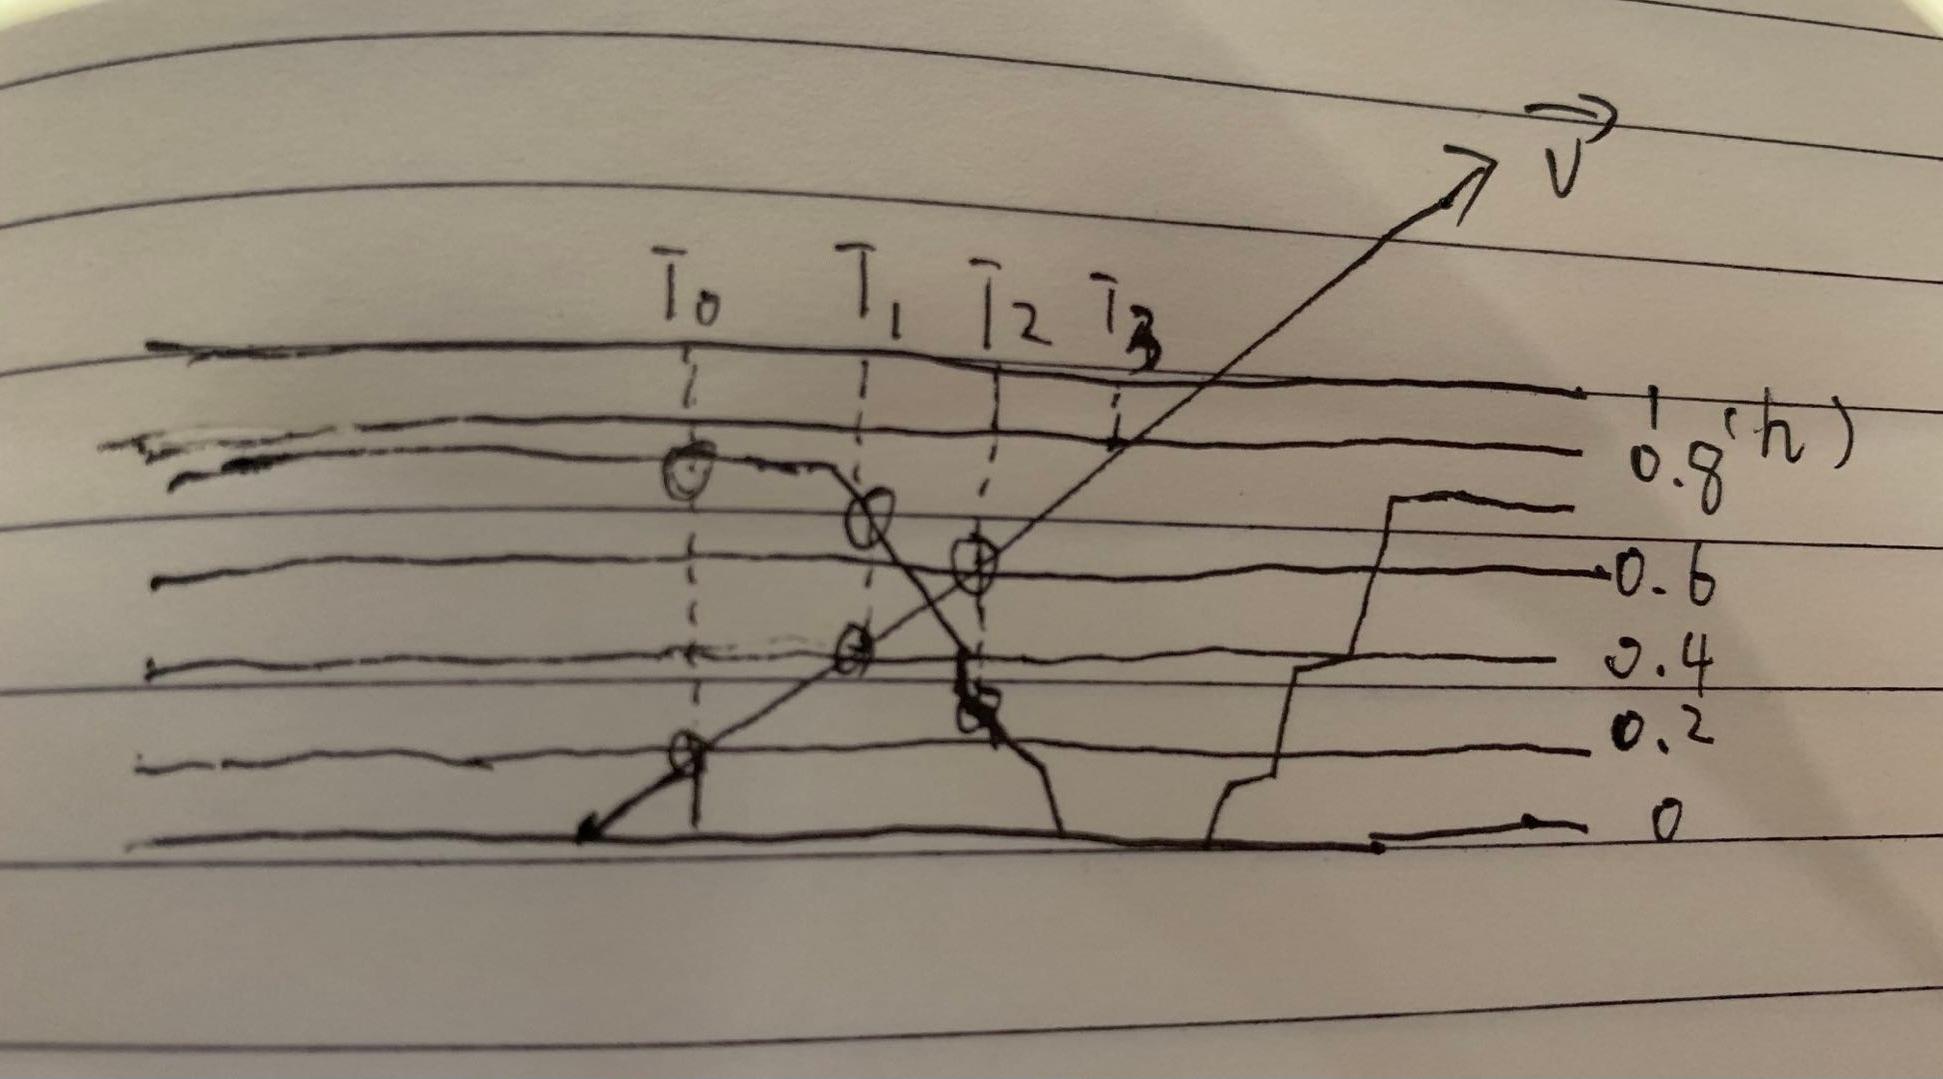 V
T0 T1 T2 T3
1
0.8 (h)
0.6
0.4
0.2
0